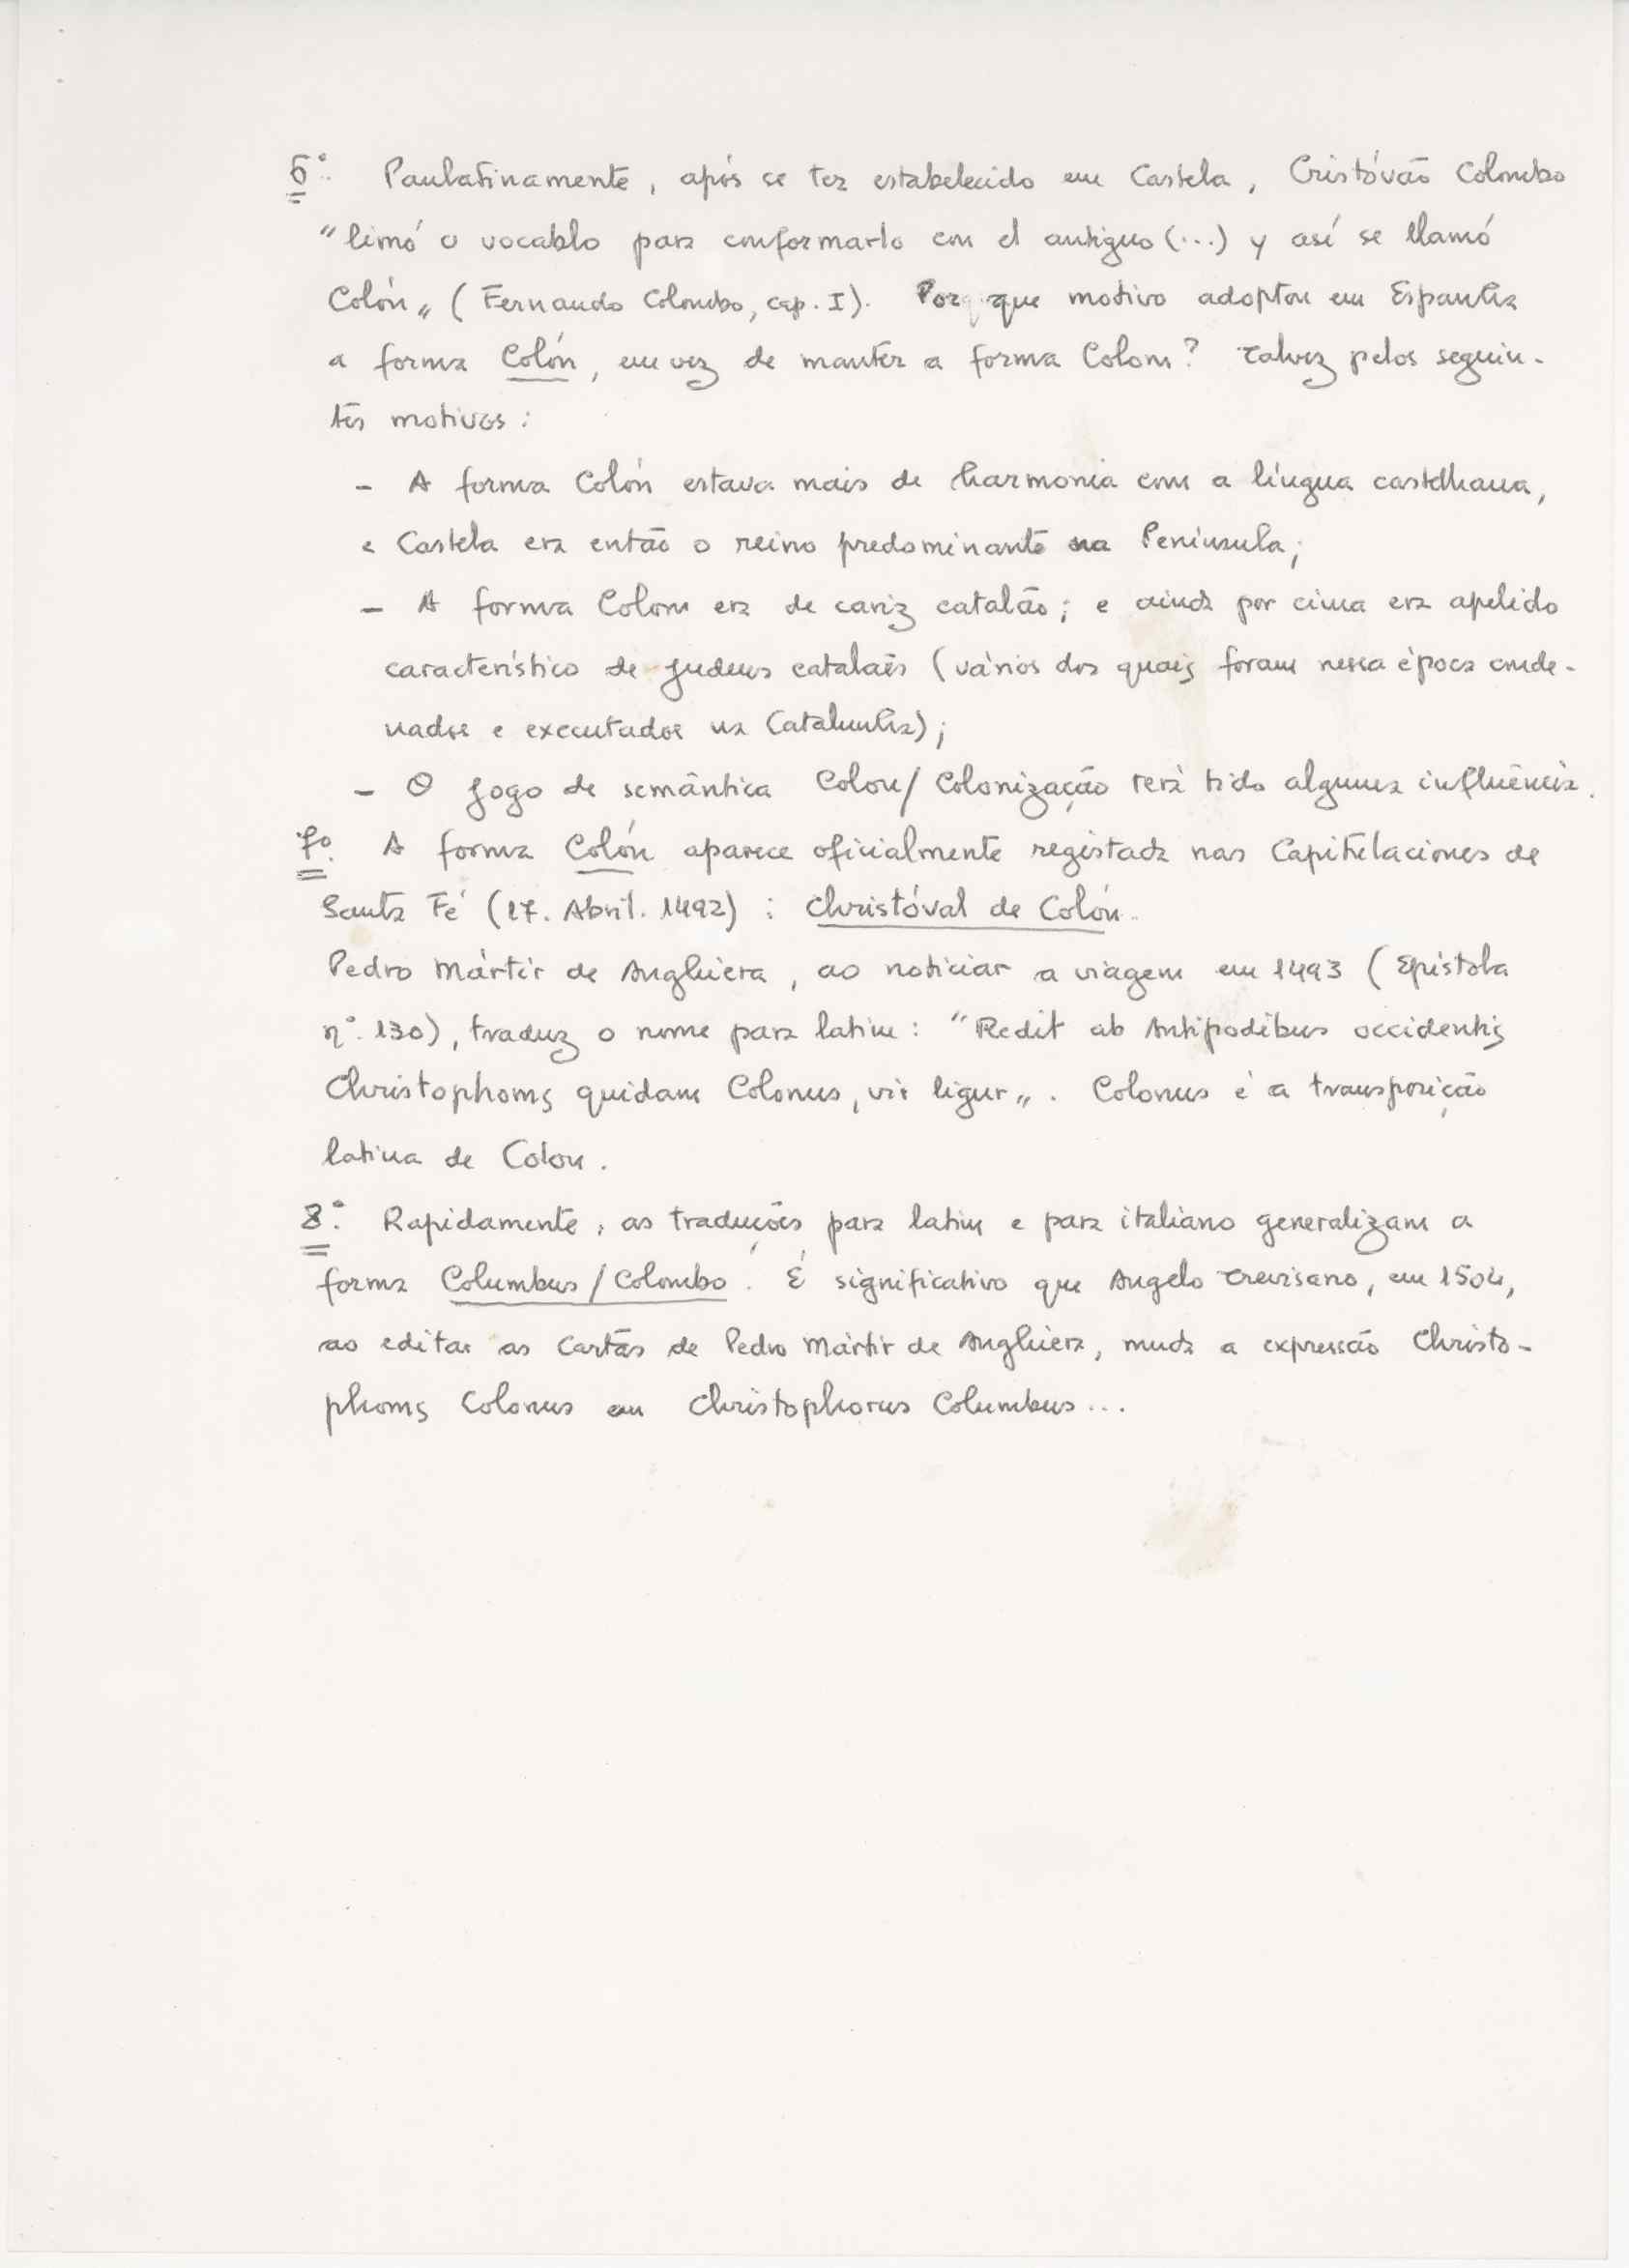 6º. Paulatinamente, após se ter estabelecido em Castela, Cristóvão Colombo
"limó o vocablo para conformarlo con el antiguo (...) y así se llamó
Colón" (Fernando Colombo, cap. I). Por que motivo adoptou em Espanha
a forma Colón, em vez de manter a forma Colom? Talvez pelos seguin-
tes motivos:
- A forma Colón estava mais de harmonia com a língua castelhana,
e Castela era então o reino predominante na Península;
- A forma Colom era de cariz catalão; e ainda por cima era apelido
característico de judeus catalães (vários dos quais foram nessa época conde-
nados e executados na Catalunha);
- O jogo de semântica Colon/Colonização terá tido alguma influência.
7º. A forma Colón aparece oficialmente registada nas Capitulaciones de
Santa Fé (17. Abril. 1492): Christóval de Colón.
Pedro Mártir de Anghiera, ao noticiar a viagem em 1493 (Epístola
nº. 130), traduz o nome para latim: "Redit ab Antipodibus occidentis
Christophorus quidam Colonus, vir ligur". Colonus é a transposição
latina de Colon.
8º. Rapidamente, as traduções para latim e para italiano generalizam a
forma Columbus/Colombo. É significativo que Angelo Trevisano, em 1504,
ao editar as Cartas de Pedro Mártir de Anghiera, muda a expressão Christo-
phorus Colonus em Christophorus Columbus...